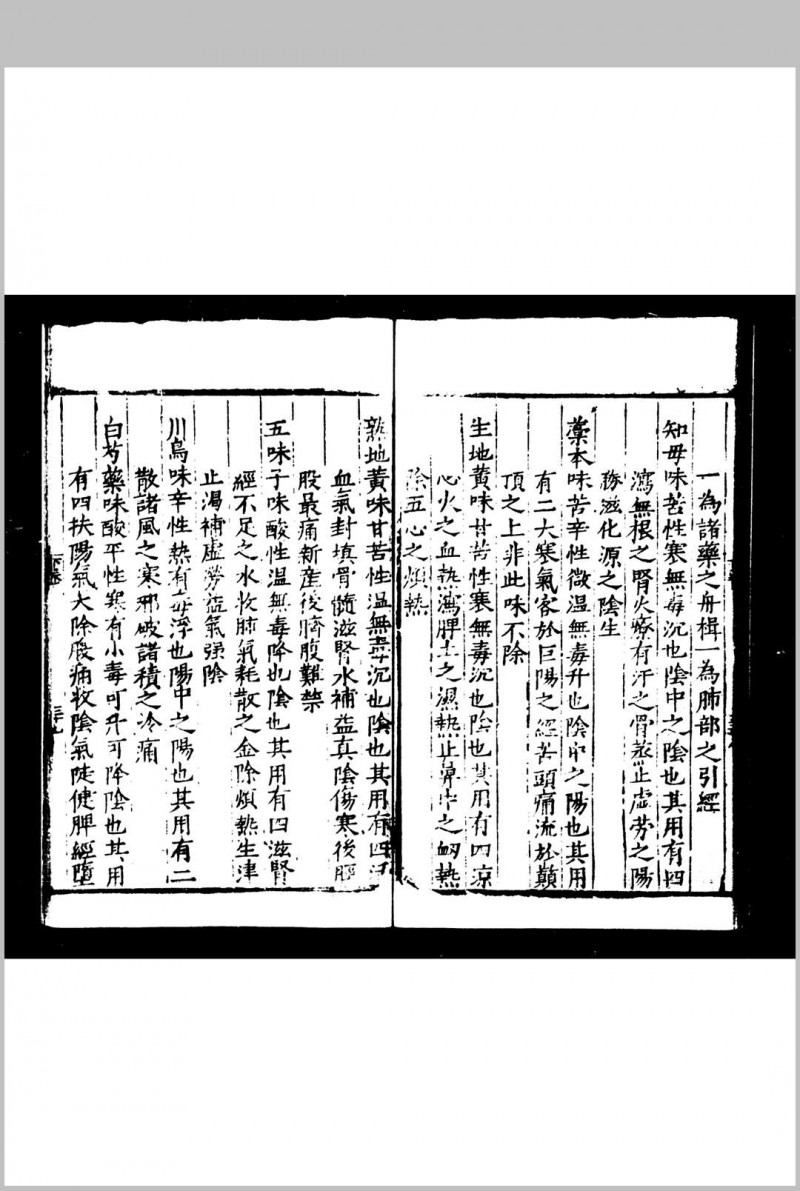 一為諸藥之舟楫一為肺部之引經
知母味苦性寒無毒沉也陰中之陰也其用有四
瀉無根之腎火療有汗之骨蒸止虛勞之陽
勝滋化源之陰生
藁本味苦辛性微温無毒升也陰中之陽也其用
有二大寒氣客於巨陽之經苦頭痛流於巔
頂之上非此味不除
生地黄味甘苦性寒無毒沉也陰也其用有四凉
心火之血熱瀉脾土之濕熱止鼻中之衂熱
除五心之煩熱
熟地黄味甘苦性温無毒沉也陰也其用有四活
血氣封填骨髓滋腎水補益真陰傷寒後脛
股最痛新産後臍腹難禁
五味子味酸性温無毒降也陰也其用有四滋腎
經不足之水收肺氣耗散之金除煩熱生津
止渴補虛勞益氣强陰
川烏味辛性熱有毒浮也陽中之陽也其用有二
散諸風之寒邪破諸積之冷痛
白芍藥味酸平性寒有小毒可升可降陰也其用
有四扶陽氣大除腹痛收陰氣陡健脾經墮